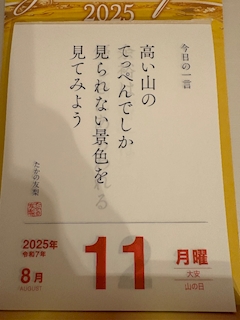 2025
今日の一言
高い山の
てっぺんでしか
見られない景色を
見てみよう
たかの友梨
2025年
令和7年
8月
AUGUST
11
月曜
大安
山の日